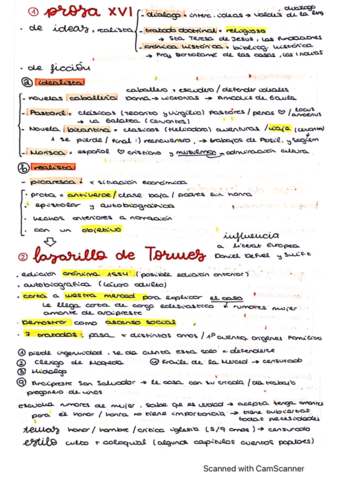 ① prosa XVI
- diálogo = interc. ideas → Valdés
- de ideas, realista
- tratado doctrinal = religiosa
→ Sta Teresa de Jesús, Las fundaciones
- crónica histórica = histórica
→ Fray Bartolomé de las Casas, las Indias
- de ficción
ⓐ idealista
caballero = escudero / defender ideales
- novelas caballería: dama → victorias → Amadís de Gaula
- Pastoril = clásicas (Teócrito y Virgilio) Pastores / penas ♡ / locus amoenus
→ La Galatea (Cervantes)
- Novela bizantina = clásicas (Heliodoro) aventuras / viaje (Cervantes)
1 se pierde / final: reencuentro → trabajos de Persil. y Segism
- Morisca = español ♡ cristiano y musulmán → admiración cultura
ⓑ realista
- picaresca = x situación económica
- prota = antihéroe / clase baja / padres sin honra
- epistolar y autobiográfica
- hechos anteriores a narración
- con un objetivo
influencia
② Lazarillo de Tormes
a literat europea
Daniel Defoe y Swift
- edición anónima 1554 (posible edición anterior)
- autobiográfica (Lázaro adulto)
- carta a vuestra merced para explicar el caso
le llega carta de cargo eclesiástico ↓ rumores mujer amante de arcipreste
- Demostrar cómo ascenso social
- 7 tratados: pasa = distintos amos / 1º cuenta orígenes familia
① pierde ingenuidad, se da cuenta esta solo = defenderse
② Clérigo de Maqueda
④ Fraile de la Merced → censurado
③ Hidalgo
⑦ Arcipreste San Salvador → le casa con su criada / da trabajo
pregonero de vinos
Escucha rumores de mujer, sabe que es verdad → acepta tenga amantes
para él honor / honra no tiene importancia → tiene cubiertas todas necesidades
temas honor / hambre / crítica iglesia (5/9 amos) → censurado
estilo culto = coloquial (algunos capítulos cuentos populares)
Scanned with CamScanner